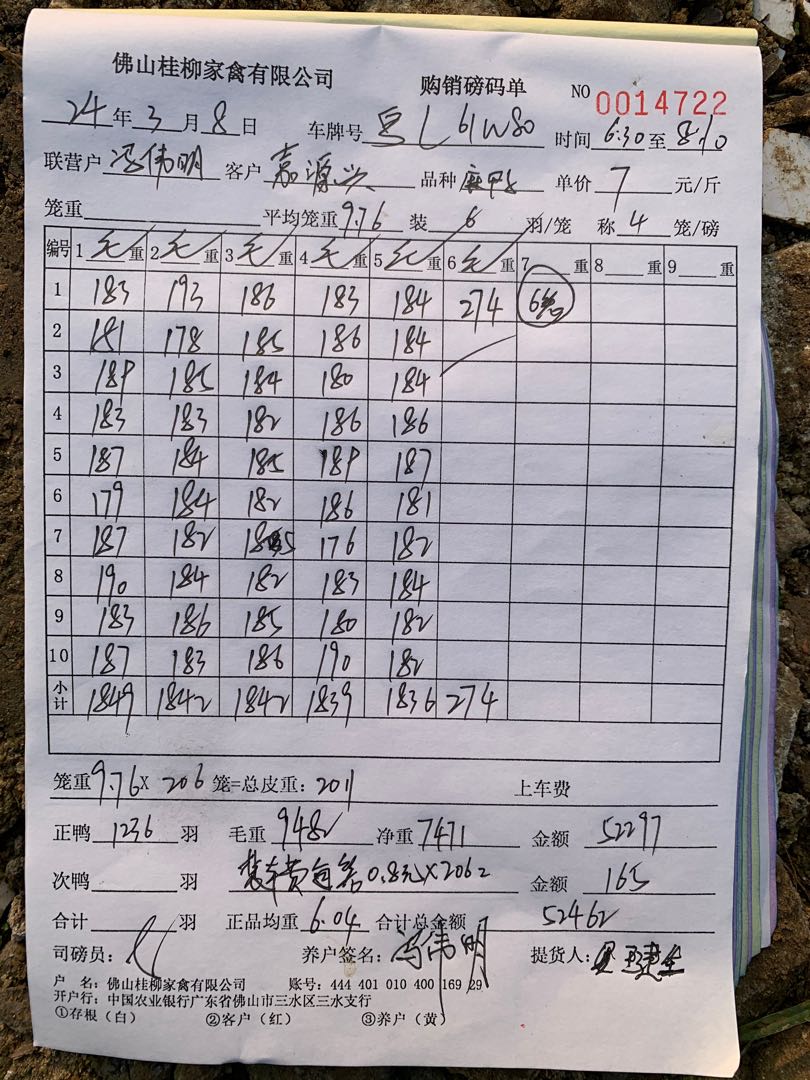 佛山桂柳家禽有限公司 购销磅码单 NO 0014722
24年3月8日 车牌号 粤L61W80 时间6:30至8:10
联营户 冯伟明 客户 嘉源兴 品种 麻鸭 单价 7 元/斤
笼重 平均笼重9.76 装 6 羽/笼 称 4 笼/磅
编号 1 毛 重 2 毛 重 3 毛 重 4 毛 重 5 毛 重 6 毛 重 7 重 8 重 9 重
1 183 193 186 183 184 274 6笼
2 181 178 185 186 184
3 189 185 184 180 184
4 183 183 182 186 186
5 187 184 185 189 187
6 179 184 182 186 181
7 187 182 185 176 182
8 190 184 182 183 184
9 183 186 185 180 182
10 187 183 186 190 182
小计 1849 1842 1842 1839 1836 274
笼重9.76X 206 笼=总皮重：2011 上车费
正鸭 1236 羽 毛重 9482 净重 7471 金额 52297
次鸭 羽 装车费 0.8元X206 金额 165
合计 羽 正品均重 6.04 合计总金额 52462
司磅员： 养户签名：冯伟明 提货人：
户 名：佛山桂柳家禽有限公司 账号：444 401 010 400 169 29
开户行：中国农业银行广东省佛山市三水区三水支行
①存根（白） ②客户（红） ③养户（黄）